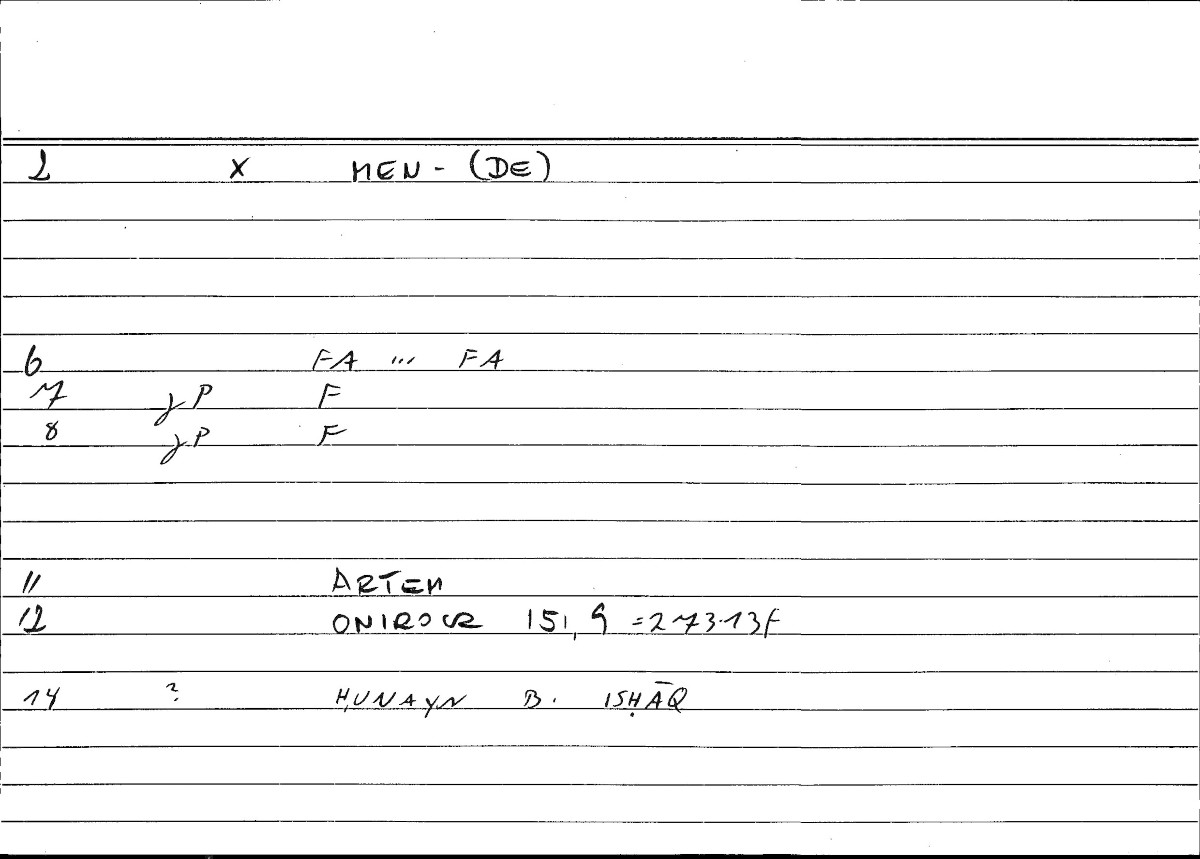 2 X MEN - (DE)
6 FA ... FA
7 γP F
8 γP F
11 ARTEM
12 ONIROCR 151, 9 = 273.13f
14 ? ḤUNAYN B. ISḤĀQ